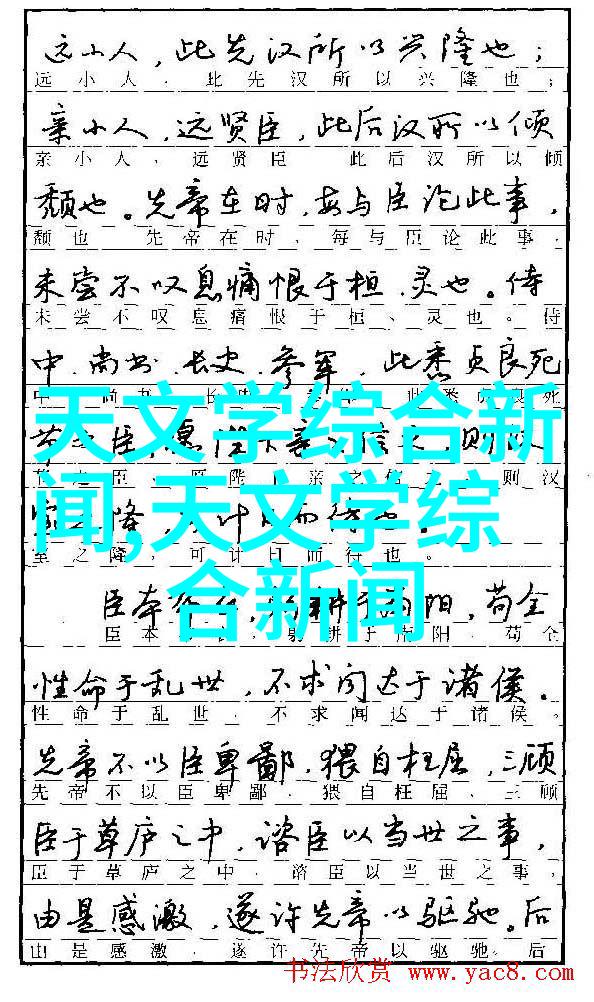 远小人，此先汉所以兴隆也；
远小人，此先汉所以兴隆也；
亲小人，远贤臣，此后汉所以倾
亲小人，远贤臣 此后汉所以倾
颓也。先帝在时，每与臣论此事，
颓也 先帝在时，每与臣论此事，
未尝不叹息痛恨于桓、灵也。侍
未尝不叹息痛恨于桓、灵也。侍
中、尚书、长史、参军，此悉贞良死
天文学综合新
闻,天文学综
合新闻
则汉
室之隆，可计日而待也。
臣本 阳，苟全
臣本 南阳，苟全
性命于乱世，不求闻达于诸侯。
性命于乱世，不求闻达于诸侯。
先帝不以臣卑鄙，猥自枉屈，三顾
先帝不以臣卑鄙，猥自枉屈、三顾
臣于草庐之中，谘臣以当世之事，
臣于草庐之中，谘臣以当世之事，
由是感激，遂许先帝以驱驰。后
由是感激，遂许先帝以驱驰。后
书法欣赏 www.yac8.com